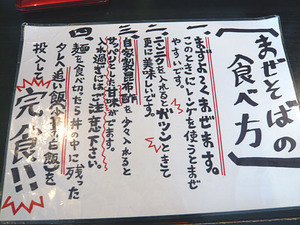 まぜそばの
食べ方
一、まずよくまぜます。
このときにレンゲを使うとまぜ
やすいです。
一、ニンニクを入れるとガツンときて
更に美味しいです。
三、自家製昆布酢を少々入れると
サッパリとした甘味がでます。
入れ過ぎにはご注意下さい。
四、麺を食べ切ったら丼の中に残った
タレへ追い飯(〆のご飯)を
投入して完食!!